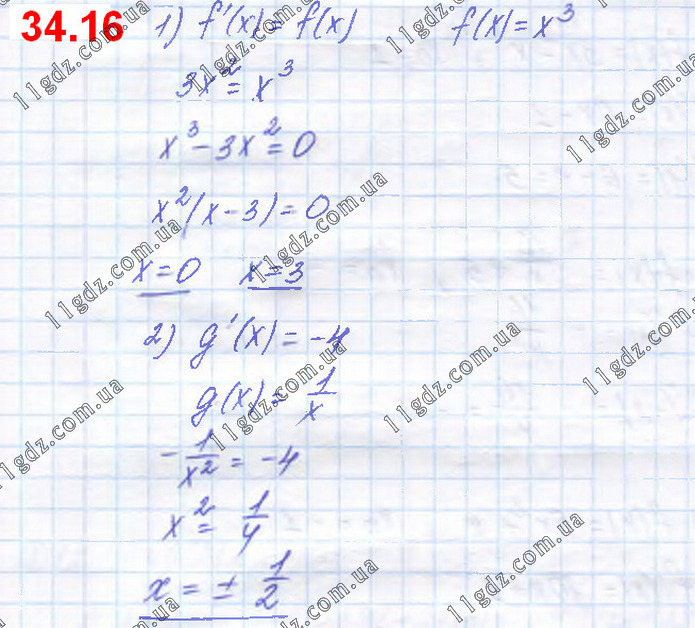 34.16 1) f'(x) = f(x) f(x) = x³
3x² = x³
x³ - 3x² = 0
x²(x - 3) = 0
x = 0 x = 3
2) g'(x) = -4
g(x) = 1/x
- 1/x² = -4
x² = 1/4
x = ± 1/2
11gdz.com.ua
11gdz.com.ua
11gdz.com.ua
11gdz.com.ua
11gdz.com.ua
11gdz.com.ua
11gdz.com.ua
11gdz.com.ua
11gdz.com.ua
11gdz.com.ua
11gdz.com.ua
11gdz.com.ua